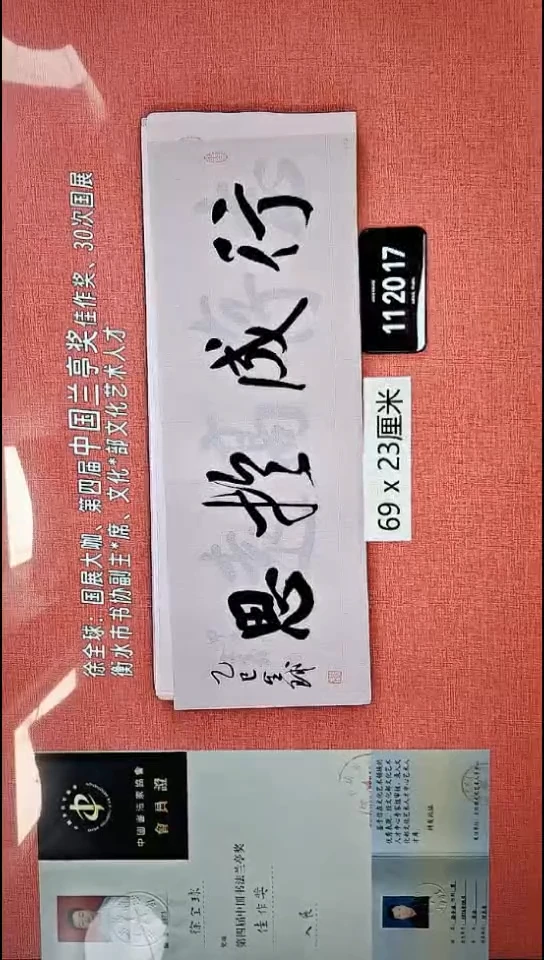 徐全球:国展大咖、第四届中国兰亭奖佳作奖、30次国展
衡水市书协副主*席、文化*部文化艺术人才
行成於思
乙巳全球
69 x 23厘米
11 20 17
中國書法家協會
會員證
徐全球
第四届中国书法兰亭奖
佳作奖